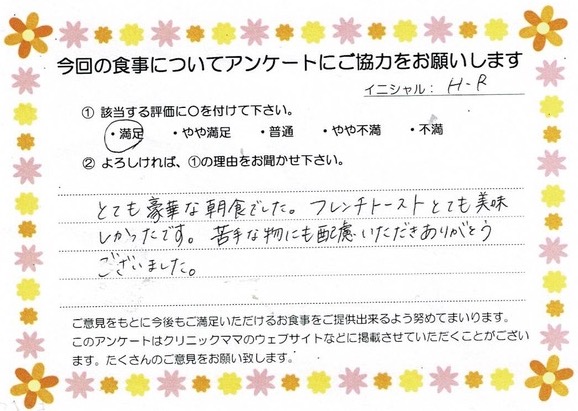 今回の食事についてアンケートにご協力をお願いします
イニシャル: H-R
① 該当する評価に○を付けて下さい。
・満足 ・やや満足 ・普通 ・やや不満 ・不満
② よろしければ、①の理由をお聞かせ下さい。
とても豪華な朝食でした。フレンチトーストとても美味
しかったです。苦手な物にも配慮いただきありがとう
ございました。
ご意見をもとに今後もご満足いただけるお食事をご提供出来るよう努めてまいります。
このアンケートはクリニックママのウェブサイトなどに掲載させていただくことがござい
ます。たくさんのご意見をお願い致します。